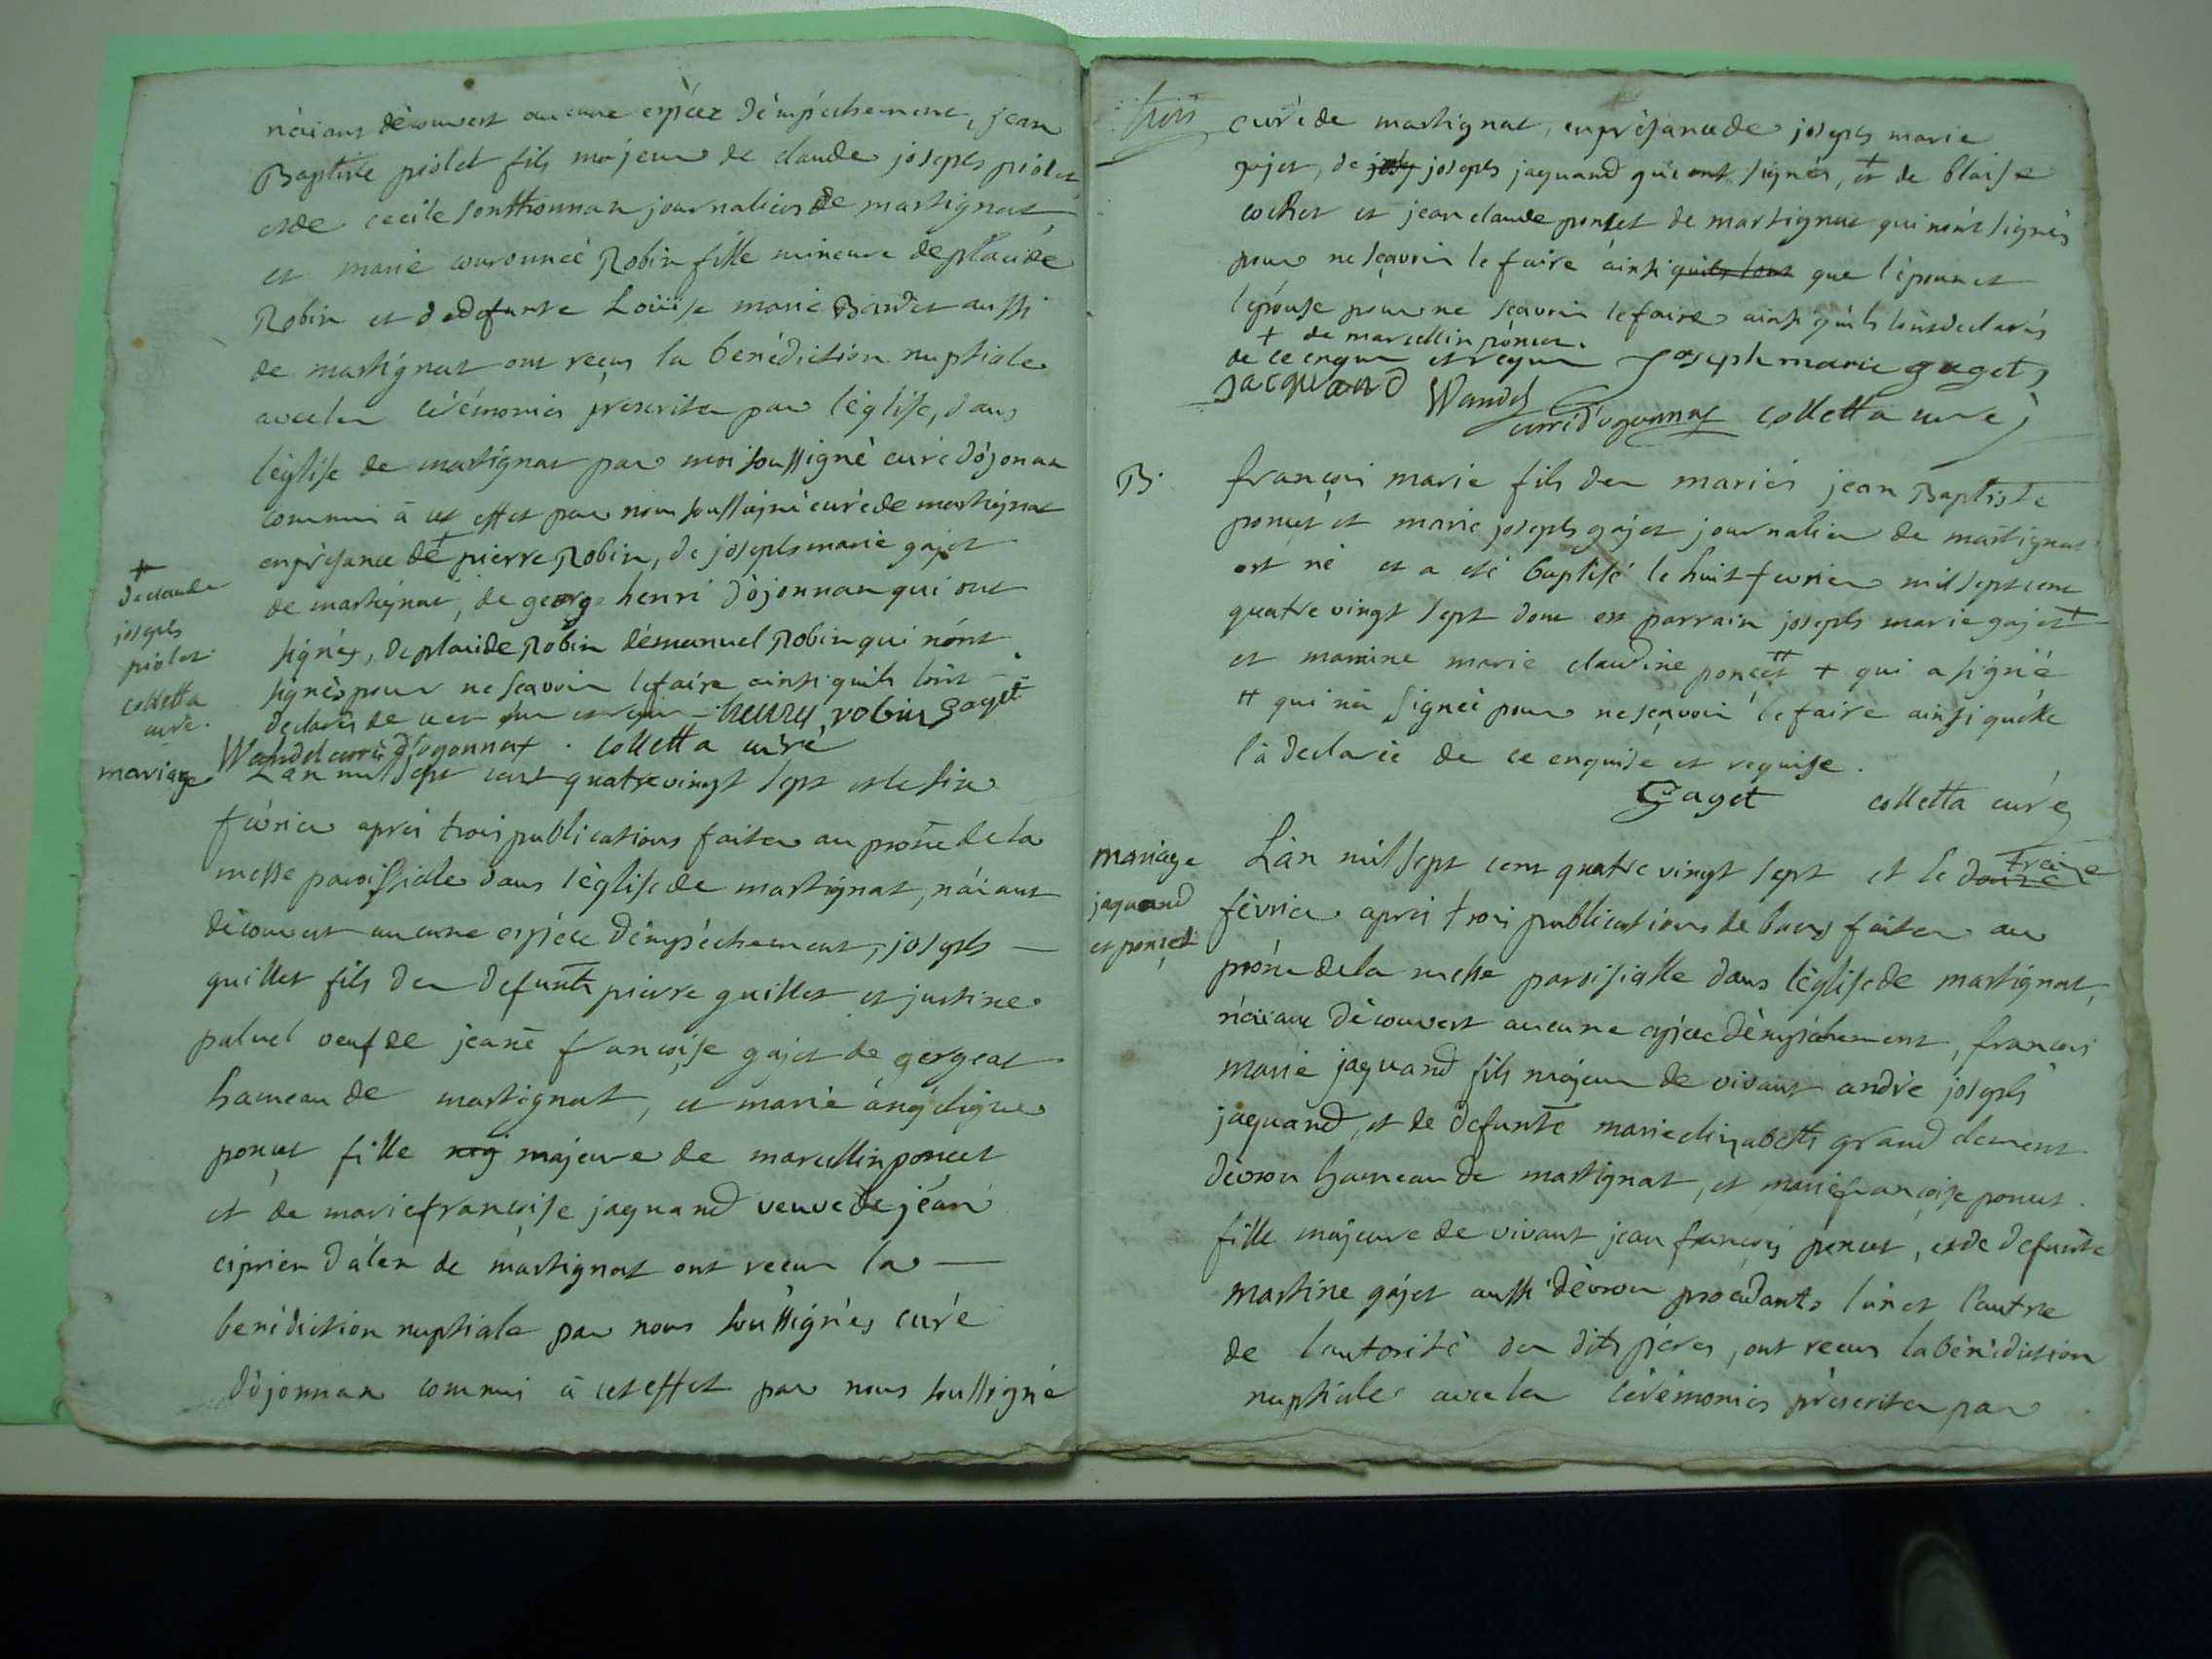 n'aiant découvert aucune espéce d'empéchement, jean
Baptiste piolet fils majeur de claude joseph piolet
et de cecile sonthonnax journalier de martignat
et marie couronnée Robin fille mineure de placide
Robin et de defunte Loüise marie Bardet aussi
de martignat ont reçus la benédiction nuptiale
avec les cérémonies prescrites par l'église, dans
l'église de martignat par moi soussigné curé d'ojonax
commis à cet effet par nous soussigné curé de martignat
en présance de + pierre Robin, de joseph marie gajet
de martignat, de george henri d'ojonnax qui ont
signés, de placide Robin d'emanuel Robin qui n'ont
signés pour ne sçavoir le faire ainsi quils l'ont
declarés de ce enquis et requis henry robin gaget
Wandel curé d'ogonnax . colletta curé
+
de claude
joseph
piolet
colletta
curé.
mariage
L'an mil sept cent quatre vingt sept et le six
février aprés trois publications faites au prône de la
messe paroissiale dans l'église de martignat, n'aiant
découvert aucune espéce d'empéchement, joseph
guillet fils des defunts pierre guillet et justine
paluel veuf de jeane françoise gajet de gergeat
hameau de martignat, et marie angélique
poncet fille maj majeure de marcellin poncet
et de marie françoise jaquand veuve de jean
ciprien d'alex de martignat ont recus la
benédiction nuptiale par nous soussignés curé
d'ojonnax commis à cet effet par nous soussigné
trois
curé de martignat, en présance de joseph marie
gajet, de josep joseph jaquand qui ont signés, + et de blaise
cochet et jean claude poncet de martignat qui n'ont signés
pour ne sçavoir le faire ainsi quils l'ont que l'époux et
l'épouse pour ne sçavoir le faire ainsi quils l'ont declarés
+ de marcellin poncet.
de ce enquis et requis Joseph marie gaget
jacquand Wandel
curé d'ogonnax colletta curé
B.
françois marie fils des mariés jean Baptiste
poncet et marie joseph gajet journalier de martignat
est né et a eté baptisé le huit fevrier mil sept cent
quatre vingt sept dont est parrain joseph marie gajet +
et marrine marie claudine poncet ++ + qui a signé
++ qui n'a signée pour ne sçavoir le faire ainsi quelle
l'a declarée de ce enquise et requise.
Gaget colletta curé
mariage
jaquand
et poncet
L'an mil sept cent quatre vingt sept et le douze treize
février aprés trois publications de bans faites au
prône de la messe paroisialle dans l'église de martignat,
n'aiant découvert aucune espéce d'empéchement, francois
marie jaquand fils majeur de vivant andré joseph
jaquand, et de defunte marie elizabeth grand clement
d'evron hameau de martignat, et marie françoise poncet
fille majeure de vivant jean françois poncet, et de defunte
martine gajet aussi d'evron procédants l'un et l'autre
de l'autorité des dits péres, ont recus la bénédiction
nuptiale avec les cérémonies préscrites par